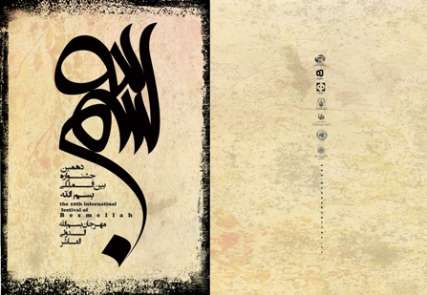 بسم الله
دهمین
جشنواره
بین المللی
بسم الله
the 10th internatinal
festival of
Besmellah
مهرجان بسم الله
الدولي
العاشر